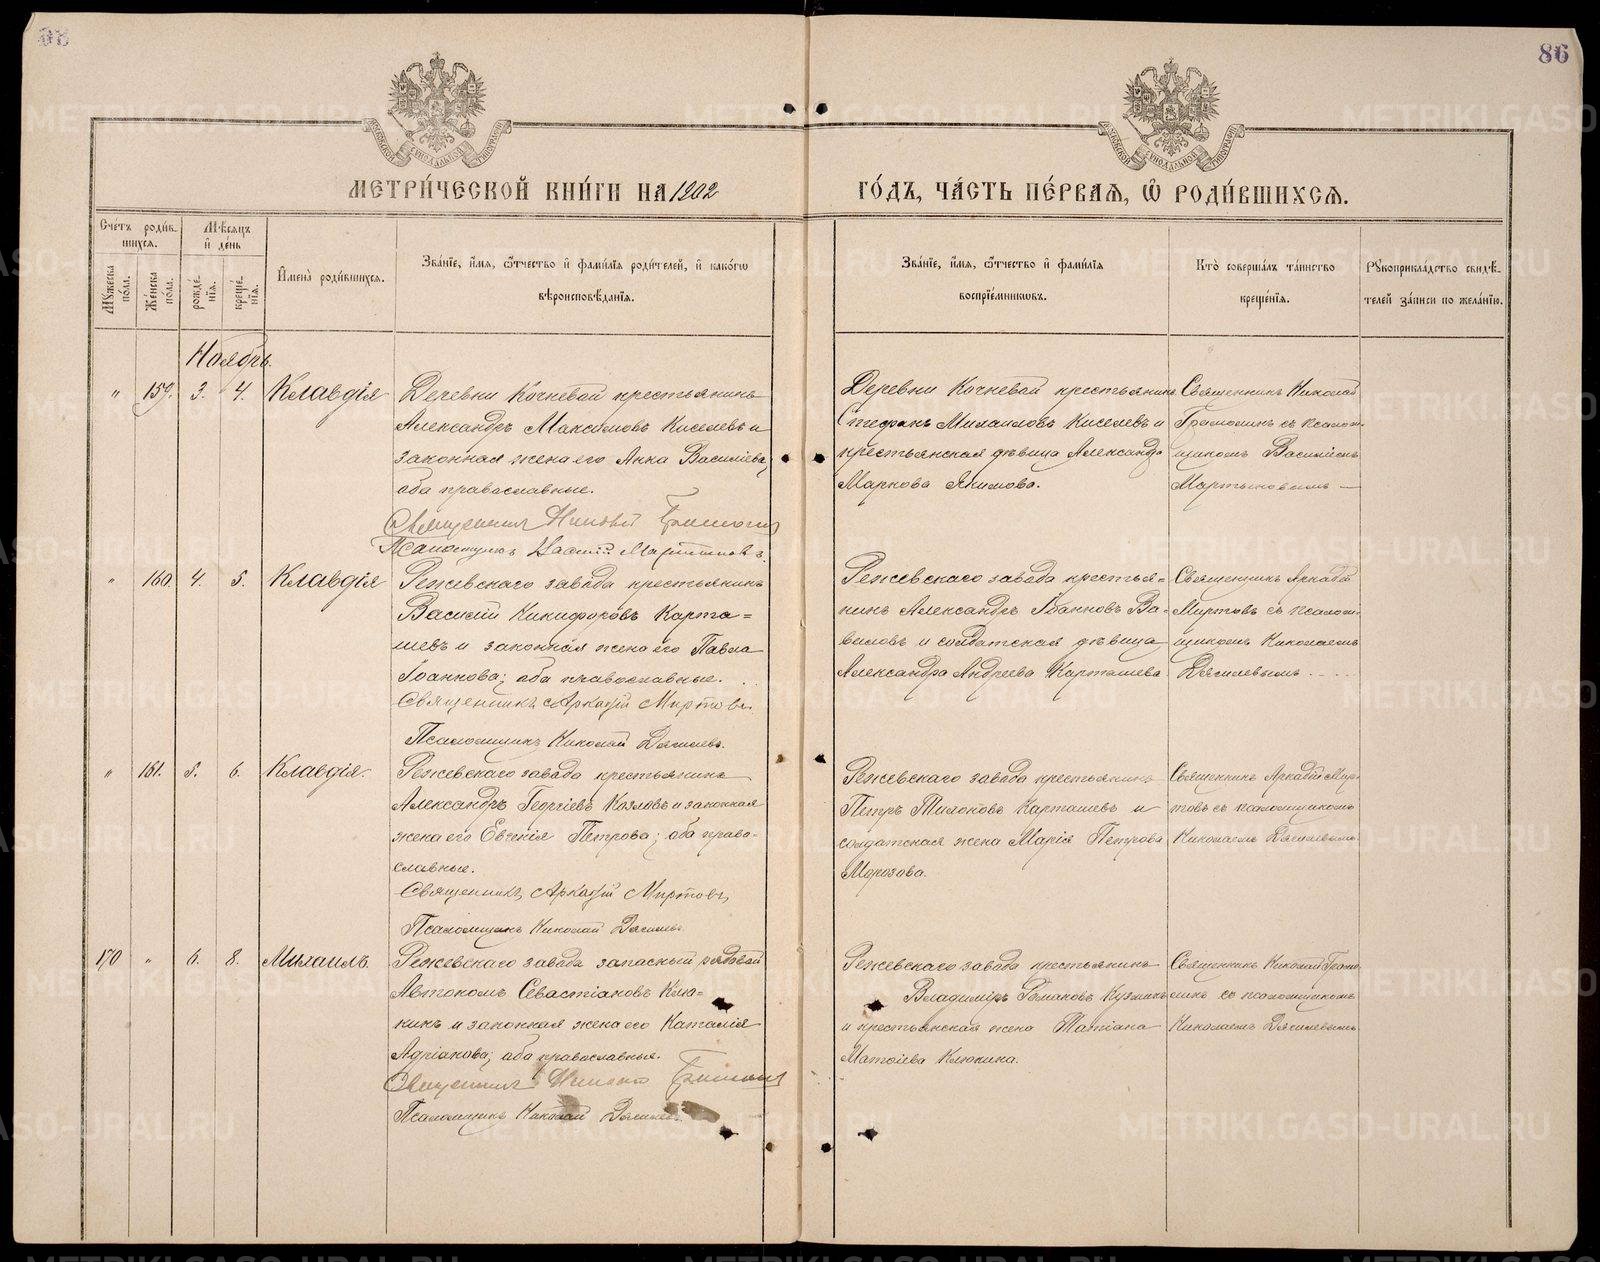 86
МЕТРИ́ЧЕСКОЙ КНИ́ГИ НА 1902
ГО́ДЪ, ЧА́СТЬ ПЕ́РВАЯ, Ѽ РОДИ́ВШИХСЯ.
Сче́тъ роди́в-
шихся.
Мѣ́сяцъ
и҆ де́нь
Мꙋ́жеска по́ла.
Же́нска по́ла.
рожде́-
нїя.
креще́-
нїя.
И҆мена̀ роди́вшихся.
Зва́нїе, и҆́мя, ѻ҆́тчество и҆ фами́лїя роди́телей, и҆ како́гѡ
вѣроисповѣ́данїя.
Зва́нїе, и҆́мя, ѻ҆́тчество и҆ фами́лїя
воспрїе́мниковъ.
Кто̀ соверша́лъ та́инство
креще́нїя.
Рꙋкоприкла́дство свидѣ́-
телей за́писи по жела́нїю.
Ноябрь.
" 159. 3. 4. Клавдія
Деревни Кочневой крестьянинъ
Александръ Максимовъ Киселевъ и
законная жена его Анна Васильева,
оба православные.
Священникъ Николай
Псаломщикъ Василій Мартыновъ
Деревни Кочневой крестьянинъ
Стефанъ Михаиловъ Киселевъ и
крестьянская дѣвица Александра
Маркова Якимова.
Священникъ Николай
съ псалом-
щикомъ Василіемъ
Мартыновымъ —
" 160. 4. 5. Клавдія
Режевскаго завода крестьянинъ
Василій Никифоровъ Карта=
шевъ и законная жена его Павла
Іоаннова; оба православные.
Священникъ Аркадій Миртовъ.
Псаломщикъ Николай Дягилевъ.
Режевскаго завода крестья=
нинъ Александръ Іоанновъ Ва-
виловъ и солдатская дѣвица
Александра Андреева Карташева
Священникъ Аркадій
Миртовъ съ псалом-
щикомъ Николаемъ
Дягилевымъ
" 161. 5. 6. Клавдія.
Режевскаго завода крестьянинъ
Александръ Георгіевъ Козловъ и законная
жена его Евгенія Петрова; оба право-
славные.
Священникъ Аркадій Миртовъ,
Псаломщикъ Николай Дягилевъ.
Режевскаго завода крестьянинъ
Петръ Тихоновъ Карташевъ и
солдатская жена Марія Петрова
Морозова.
Священникъ Аркадій Мир-
товъ съ псаломщикомъ
Николаемъ Дягилевымъ.
170 " 6. 8. Михаилъ.
Режевскаго завода запасный рядовой
Автономъ Севастіановъ Клю-
кинъ и законная жена его Наталія
Адріанова; оба православные.
Священникъ Николай
Псаломщикъ Николай Дягилевъ.
Режевскаго завода крестьянинъ
Владиміръ Романовъ Кузминъ
и крестьянская жена Татіана
Матѳіева Клюкина.
Священникъ Николай
съ псаломщикомъ
Николаемъ Дягилевымъ
METRIKI.GASO-URAL.RU